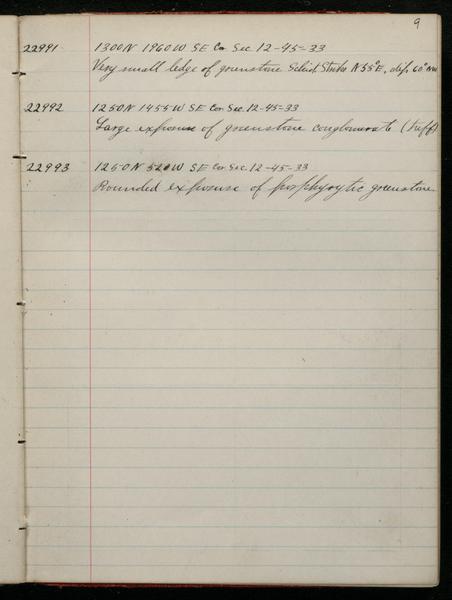 9
22991 1300N 1960W SE Cor Sec 12-45-33
Very small ledge of greenstone Schist Strike N 55°E, dip 60° NW
22992 1250N 1455W SE Cor Sec. 12-45-33
Large exposure of greenstone conglomerate (tuff)
22993 1250N 520W SE Cor Sec. 12-45-33
Rounded exposure of porphyrytic greenstone